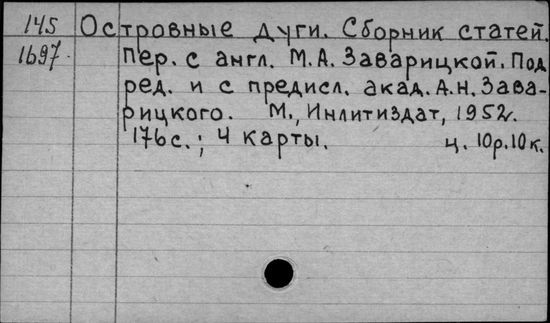 145 Островные дуги. Сборник статей.
1697 Пер. с англ. М.А. Заварицкой. Под
ред. и с предисл. акад. А.Н. Зава-
рицкого. М., Инлитиздат, 1952.
176 с.; 4 карты. ц. 10р.10к.